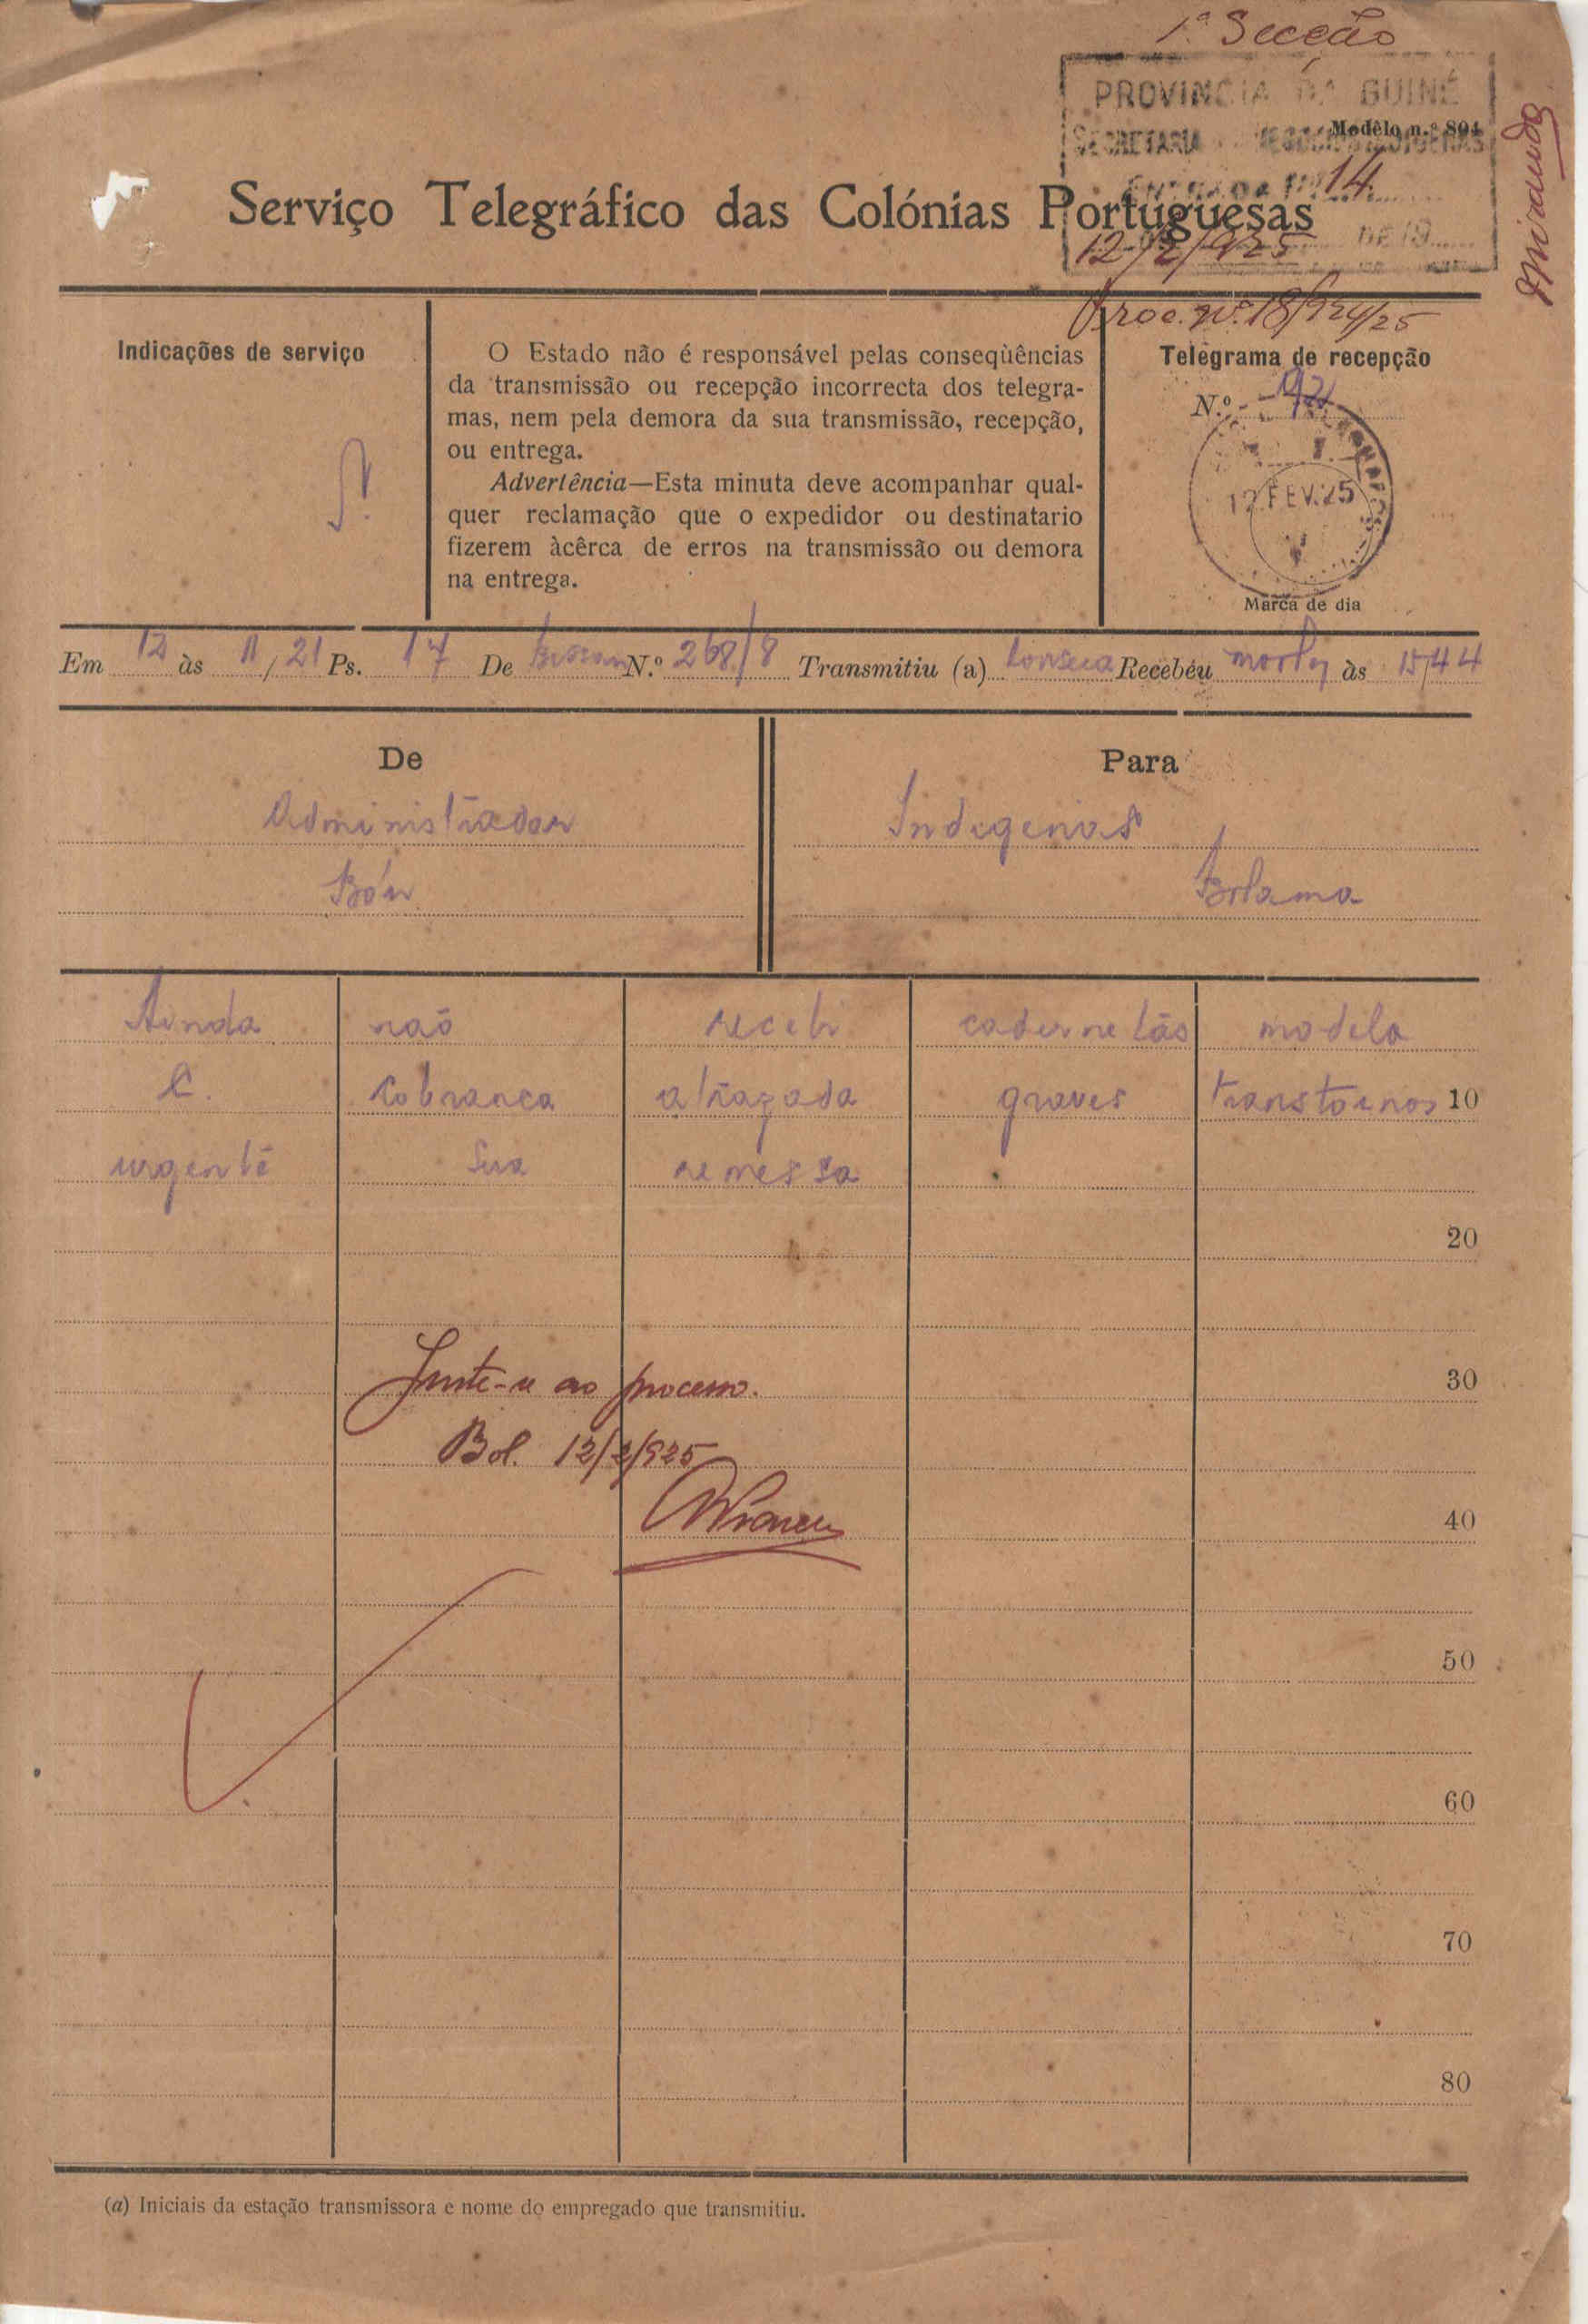 1.ª Secção
PROVINCIA DA GUINÉ
Modêlo n.º 804
SECRETARIA NEGOCIOS INDIGENAS
ENTRADA Nº 14
Serviço Telegráfico das Colónias Portuguesas
12/2/925 DE 19
Miranda
Proc. nº 18/924/25
Indicações de serviço
S.
O Estado não é responsável pelas conseqùências
da transmissão ou recepção incorrecta dos telegra-
mas, nem pela demora da sua transmissão, recepção,
ou entrega.
Advertência—Esta minuta deve acompanhar qual-
quer reclamação que o expedidor ou destinatario
fizerem àcêrca de erros na transmissão ou demora
na entrega.
Telegrama de recepção
N.º
12.FEV.25
Marca de dia
Em 12 às 11/21 Ps. 17 De Bissau N.º 268/8 Transmitiu (a) Fonseca Recebéu às 15/44
De
Administrador
Para
Indigenas
Bolama
Ainda não recebi cadernetas modelo
C. cobranca atrazada graves transtornos 10
urgente sua remessa
20
Junte-se ao processo. 30
Bol. 12/2/925
40
50
60
70
80
(a) Iniciais da estação transmissora e nome do empregado que transmitiu.